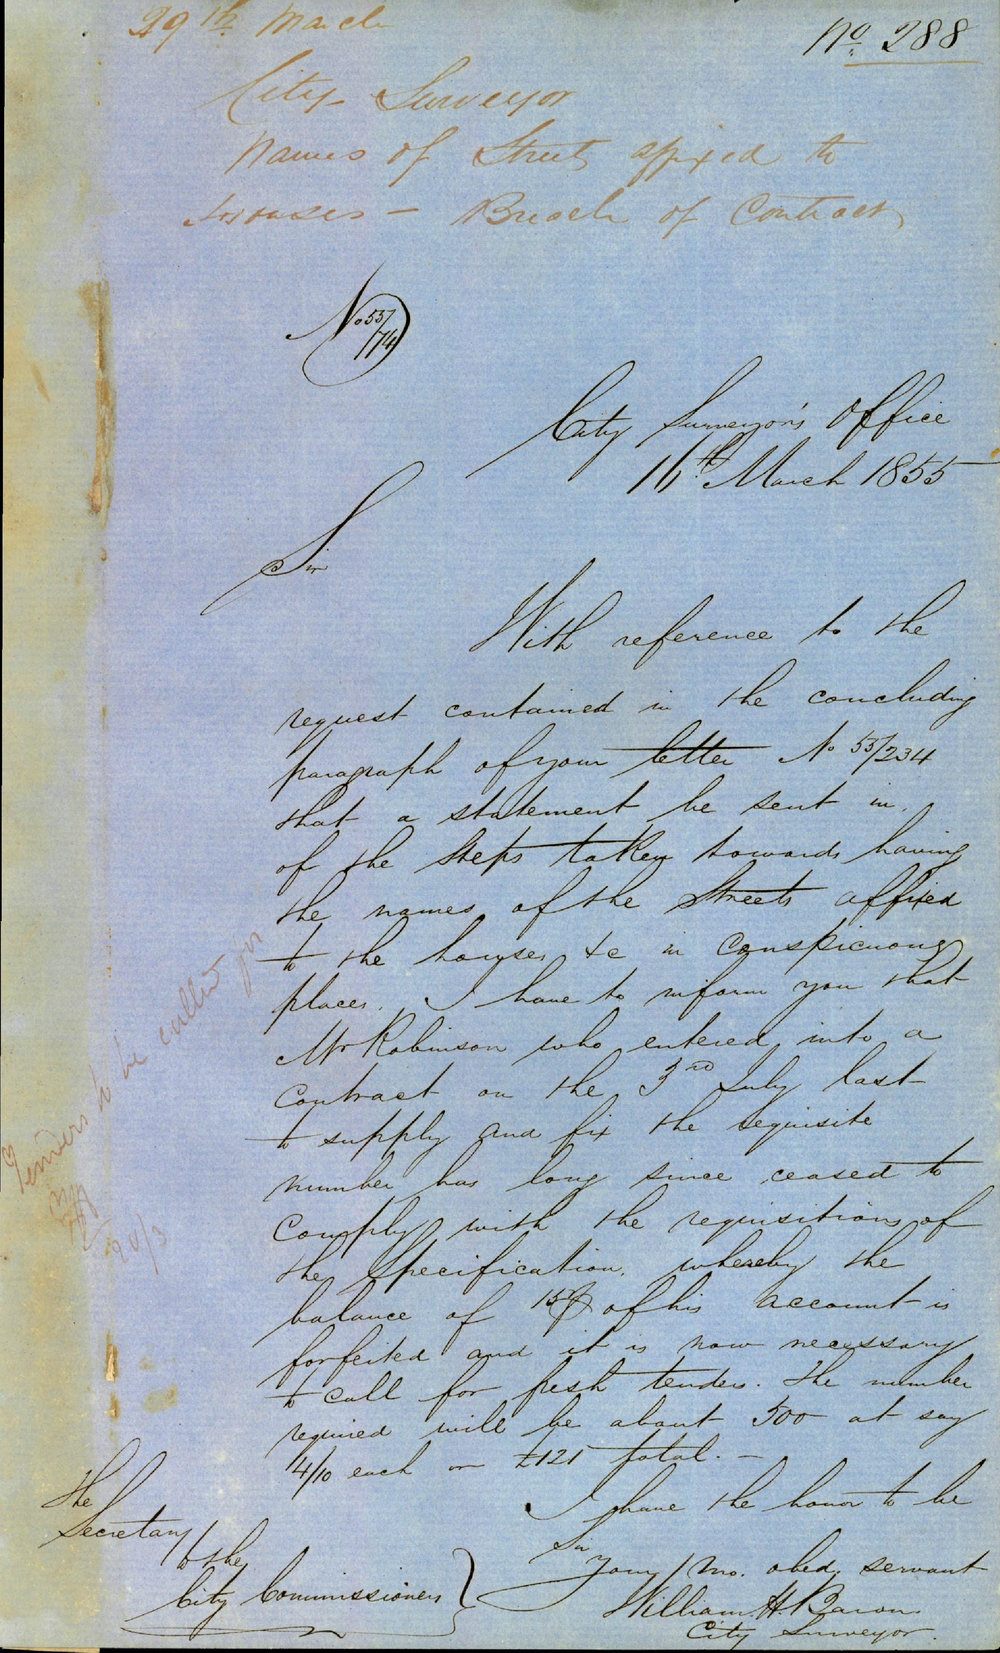 29th March
No. 288
City Surveyor
Names of Streets affixed to
Houses - Breach of Contract
No 55/74
City Surveyor's Office
16th March 1855
Sir
With reference to the
request contained in the concluding
paragraph of your letter No 55/234
that a statement be sent in
of the steps taken towards having
the names of the Streets affixed
to the houses &c in conspicuous
places. I have to inform you that
Mr Robinson who entered into a
contract on the 3rd July last
to supply and fix the requisite
number has long since ceased to
comply with the requisitions of
the Specification, whereby the
balance of of his account is
forfeited and it is now necessary
to call for fresh tenders. The number
required will be about 500 at say
4/10 each or £121 total. -
I have the honor to be
Sir
Your mo. obed. servant
William H. Bacon
City Surveyor.
The
Secretary
to the
City Commissioners
Tenders to be called for
20/3